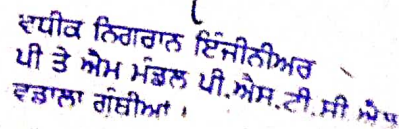 ਵਧੀਕ ਨਿਗਰਾਨ ਇੰਜੀਨੀਅਰ
ਪੀ ਤੇ ਐਮ ਮੰਡਲ ਪੀ.ਐਸ.ਟੀ.ਸੀ ਐਲ
ਵਡਾਲਾ ਗ੍ਰੰਥੀਆਂ ।